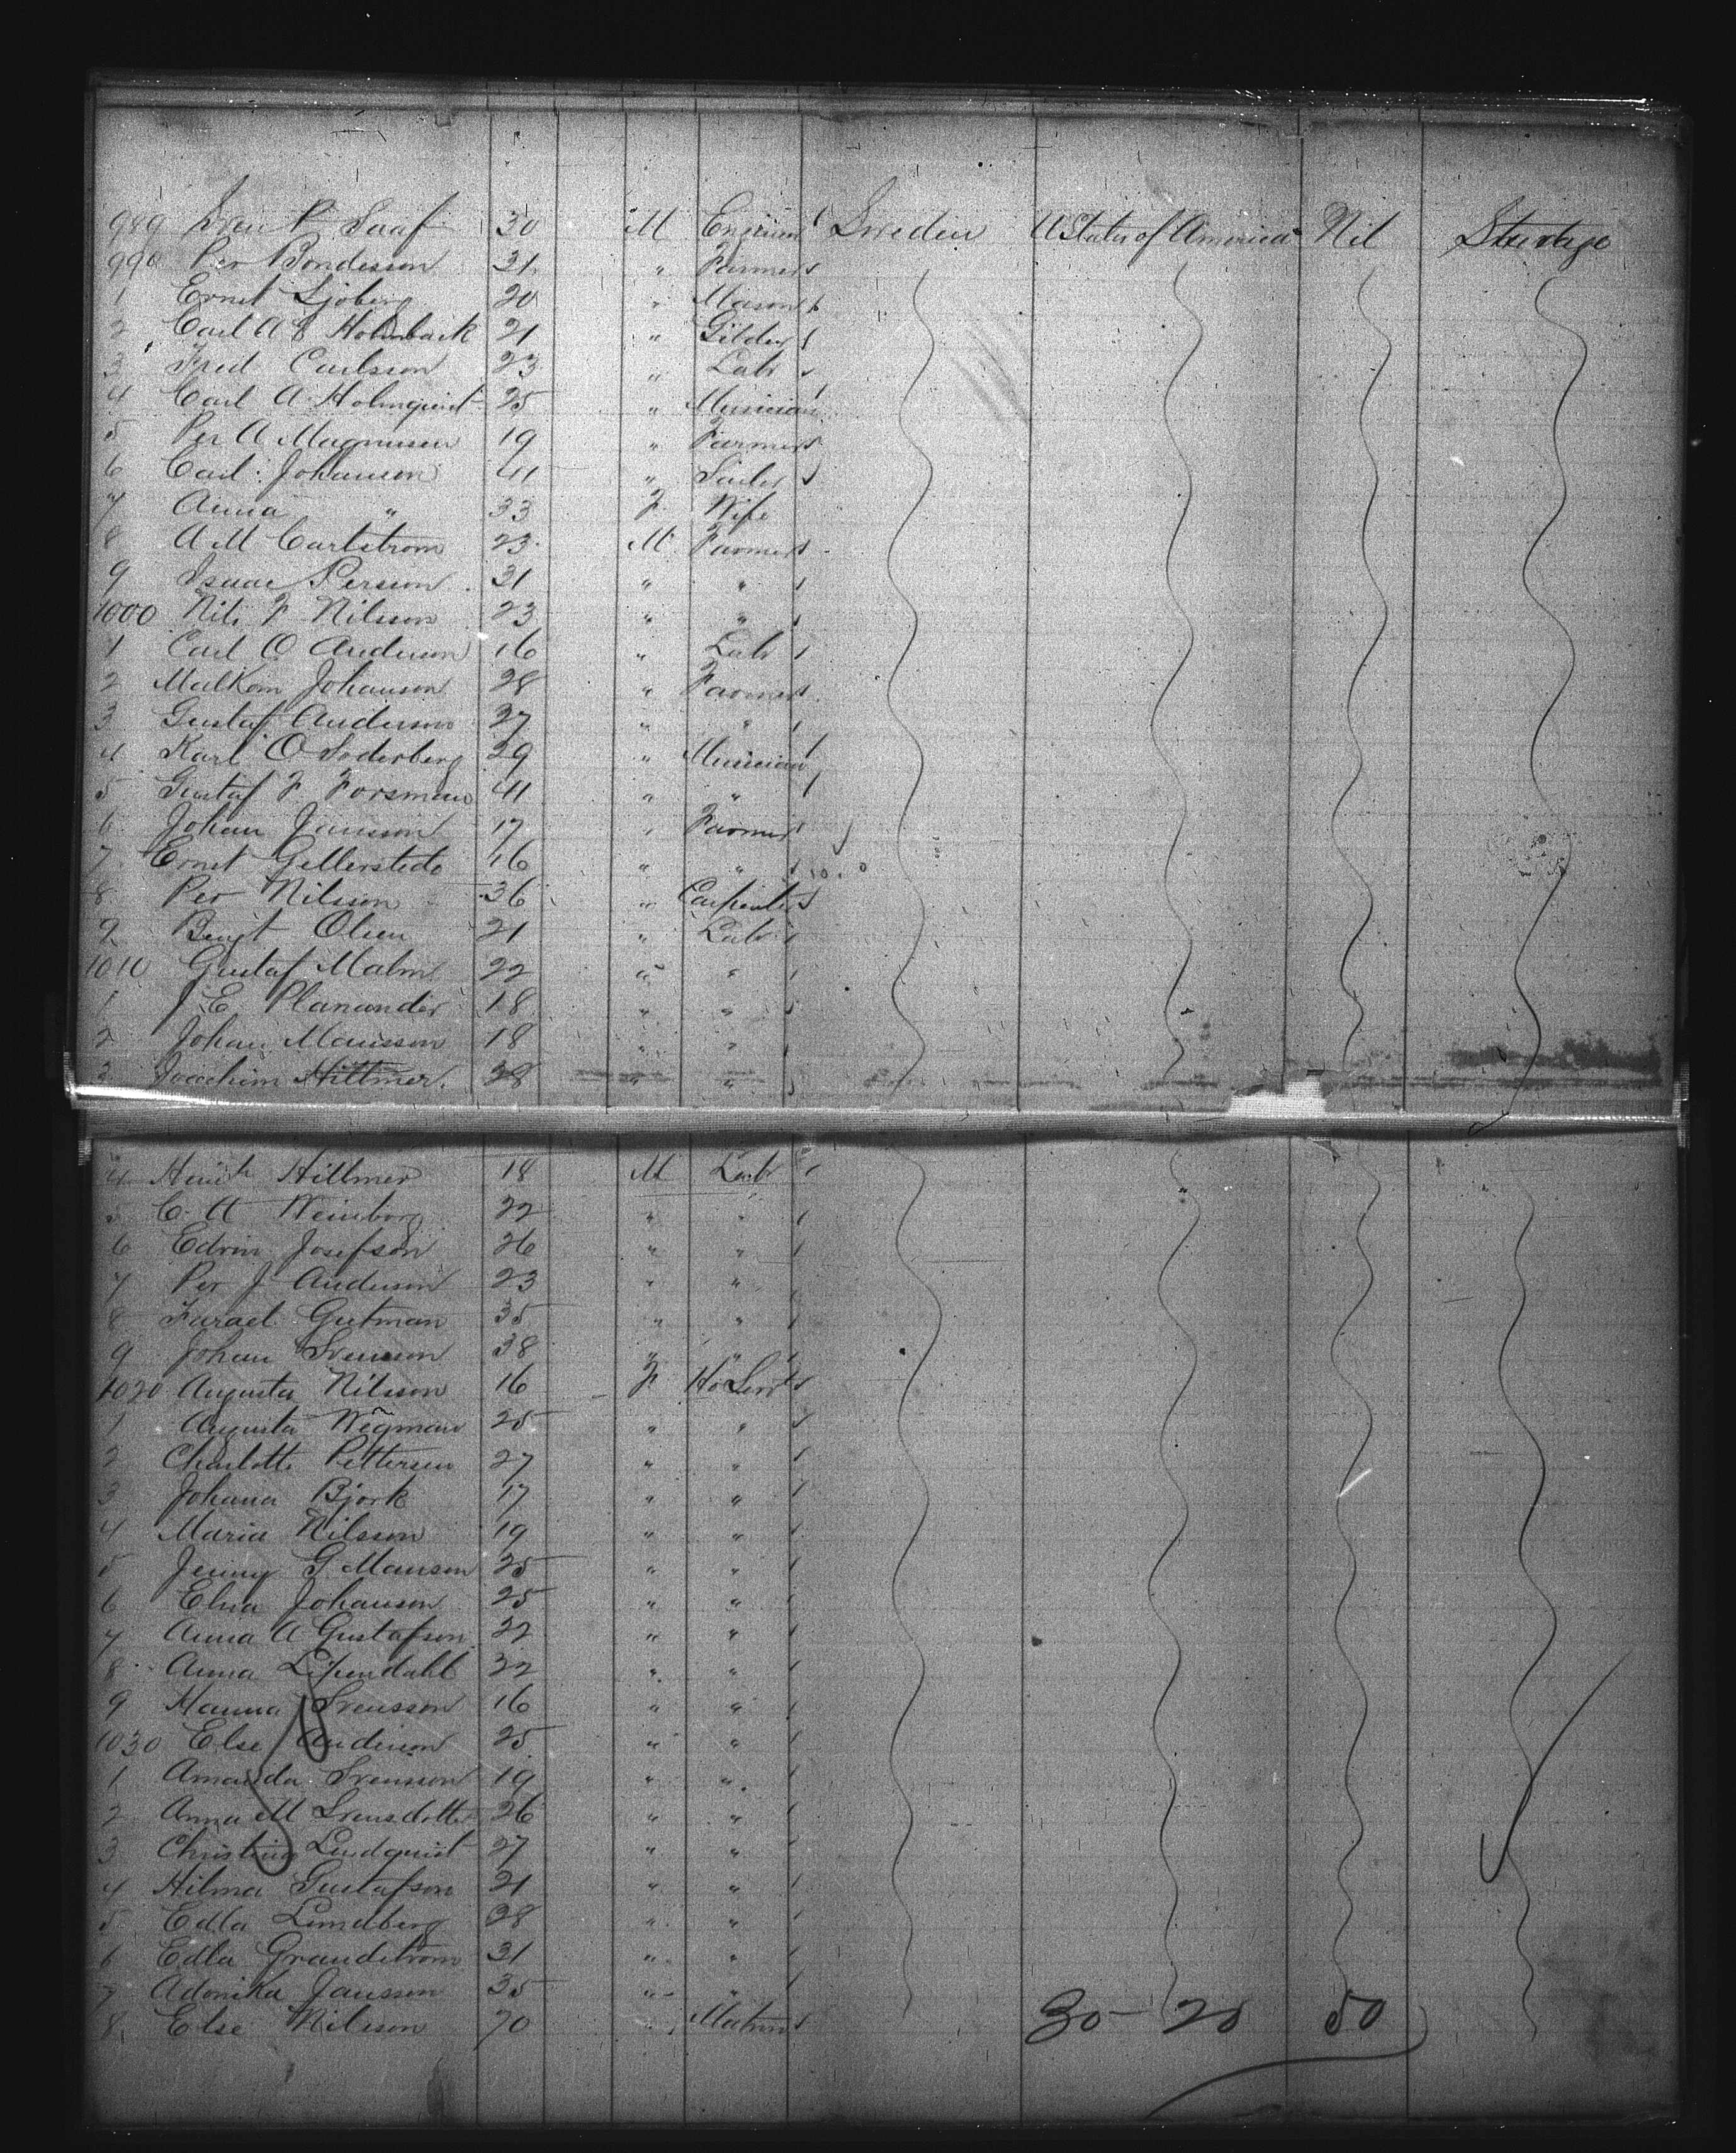 989 Sven P Saaf 30 M Sweden U States of America Nil Steerage
990 Per Bondesson 31 " Farmer
1 Ernst Sjoberg 20 " Mason
2 Carl A E 21 " Gilder
3 Fred Carlsson 23 " Labr
4 Carl A Holmquist 25 " Musician
5 Per A Magnusen 19 " Farmer
6 Carl Johanson 41 " Sailor
7 Anna " 33 F Wife
8 A M Carlstrom 23 M Farmer
9 Isaac Person 31 " "
1000 Nils F Nilsson 23 " "
1 Carl O Anderson 16 " Labr
2 Malkom Johanson 28 " Farmer
3 Gustaf Anderson 27 " "
4 Karl O Soderberg 29 " Musician
5 Gustaf F Forsman 41 " "
6 Johan Jansson 17 " Farmer
7 Ernst Gellerstedt 46 " "
8 Per Nilsson 36 " Carpenter
9 Bengt Olsen 21 " Labr
1010 Gustaf Malm 22 " "
1 J E Planander 18 " "
2 Johan Mansson 18 " "
3 Joachim Hittmer 38 " "
4 Hittmer 18 M Labr
5 C. A Weinborg 22 " "
6 Edvin Josefson 26 " "
7 Per J Anderson 23 " "
8 Israel Gutman 35 " "
9 Johan Svensson 38 " "
1020 Augusta Nilsson 16 F Ho Servt
1 Augusta Wegman 25 " "
2 Charlotte Pettersen 27 " "
3 Johana Bjork 17 " "
4 Maria Nilsson 19 " "
5 Jenny G Manson 25 " "
6 Elna Johanson 25 " "
7 Anna A Gustafson 22 " "
8 Anna 32 " "
9 Hanna Svensson 16 " "
1030 Else Anderson 25 " "
1 Amanda Svensson 19 " "
2 Anna M Svensdotter 26 " "
3 Christina Lindquist 27 " "
4 Hilma Gustafson 21 " "
5 Edla Lundberg 38 " "
6 Edla Grandstrom 31 " "
7 Adonika Jansson 35 " "
8 Else Nilsson 70 " Matron 30 - 20 50